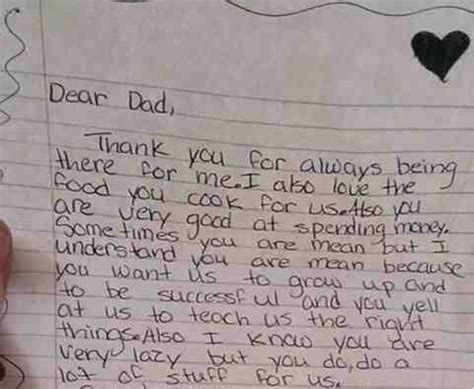 Dear Dad,
Thank you for always being
there for me. I also love the
food you cook for us. Also you
are very good at spending money.
Sometimes you are mean but I
understand you are mean because
you want us to grow up and
to be successful and you yell
at us to teach us the right
things. Also I know you are
very lazy but you do, do a
lot of stuff for us.